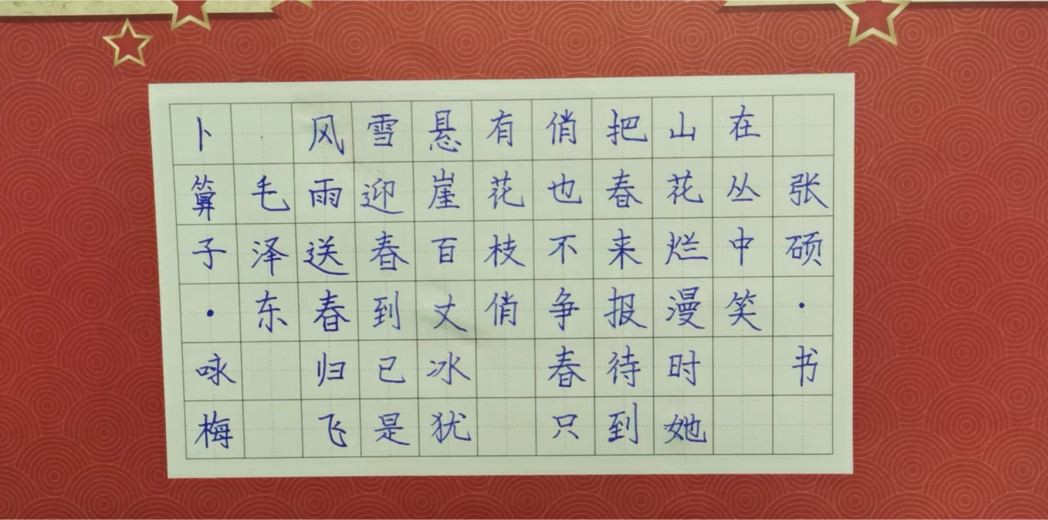 卜算子·咏梅
毛泽东
风雨送春归飞
雪迎春到已是
悬崖百丈冰犹
有花枝俏
俏也不争春只
把春来报待到
山花烂漫时她
在丛中笑
张硕·书